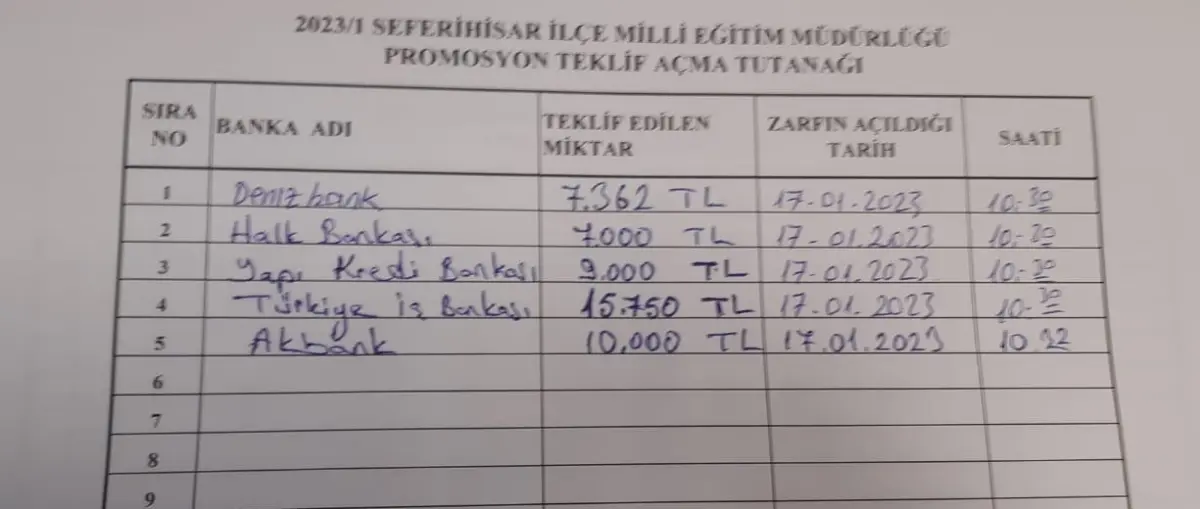 2023/1 SEFERİHİSAR İLÇE MİLLİ EĞİTİM MÜDÜRLÜĞÜ
PROMOSYON TEKLİF AÇMA TUTANAĞI
SIRA NO BANKA ADI TEKLİF EDİLEN MİKTAR ZARFIN AÇILDIĞI TARİH SAATİ
1 Denizbank 7.362 TL 17-01.2023 10:30
2 Halk Bankası 7.000 TL 17-01.2023 10:30
3 Yapı Kredi Bankası 9.000 TL 17-01.2023 10:30
4 Türkiye iş Bankası 15.750 TL 17.01.2023 10:30
5 Akbank 10.000 TL 17.01.2023 10 32
6
7
8
9